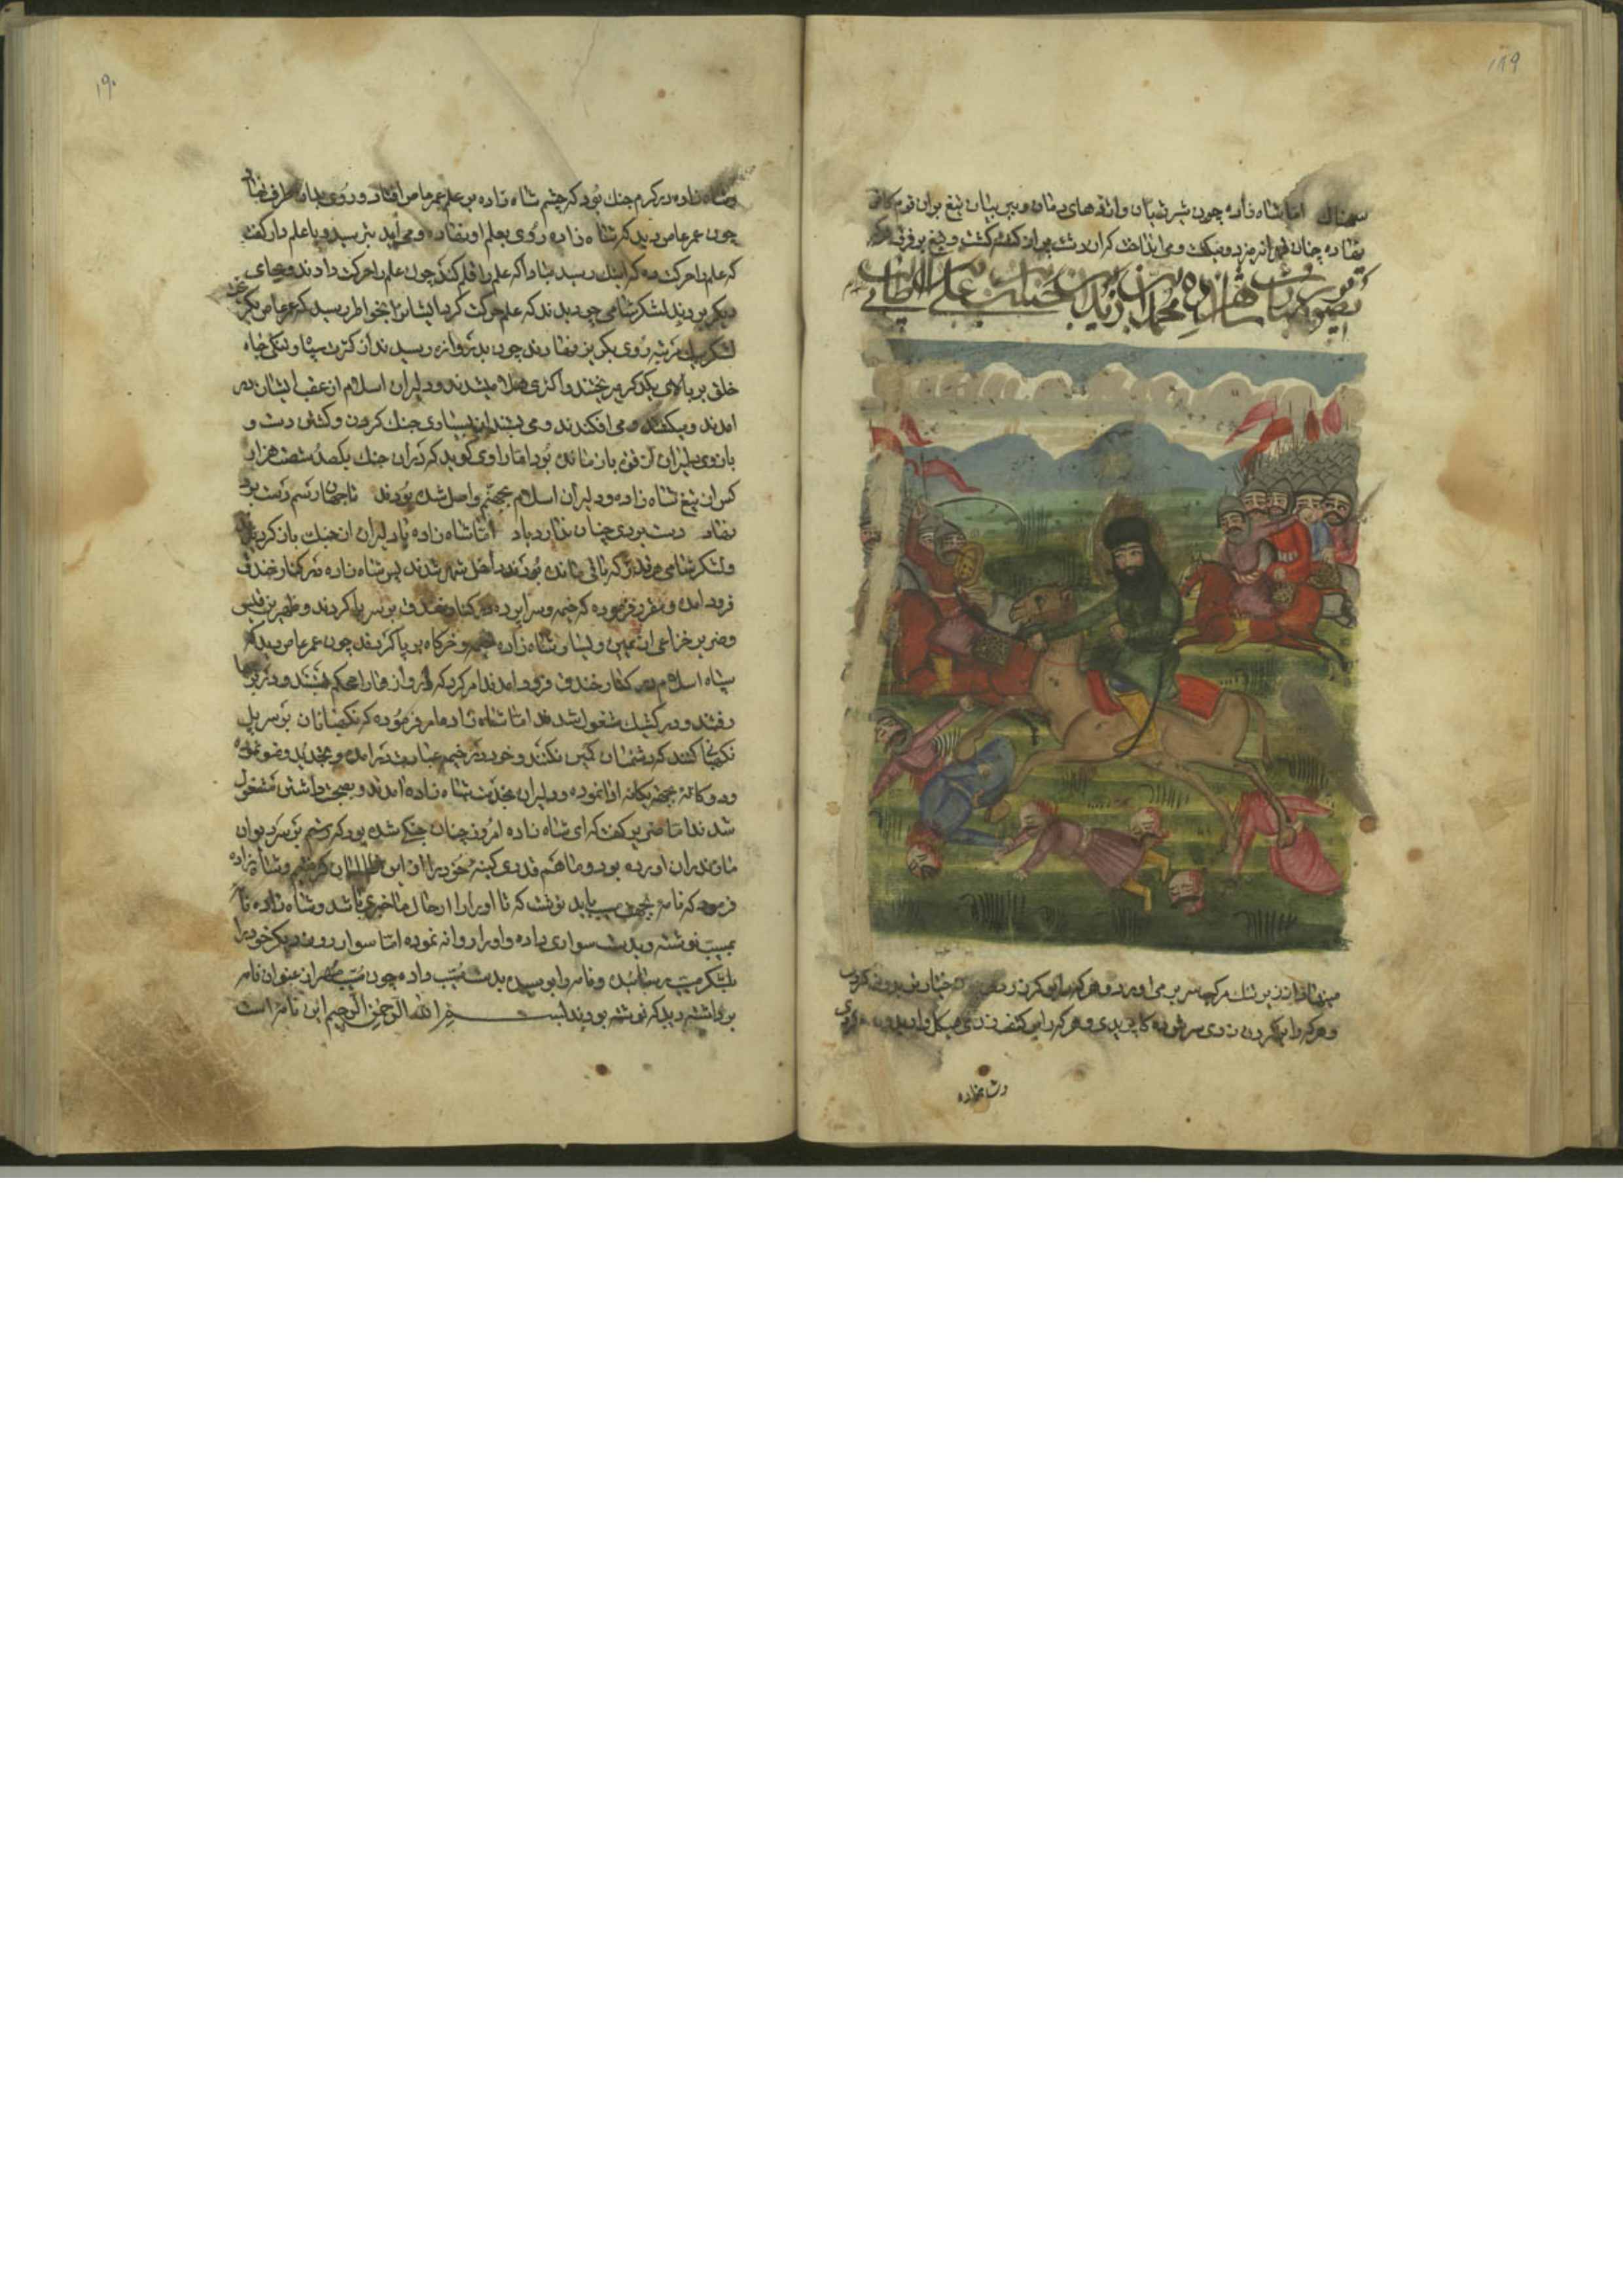 ۱۸۹
سهمناک اما شاه زاده چون شیر ژیان و اژدهای دمان و ببر بیان تیغ بران قوم کافر
نهاده چنان میزد و میکشت و می انداخت که ان دشت پر از کشته کشت و تیغ بر فرق هر که
تصویر شاهزاده محمد ابن حضرت علی ابن ابی طالب
میزد از زیر تنک مرکب سر بر می اورد و هر که را بر کمر زدی چون خیار تر بدو نیم کردی
و هر که را بر کردن زدی سر چون کوی پریدی و هر که را بر کتف زدی هیکل وار بدو
وشاهزاده
۱۹۰
وشاه زاده در کرم جنک بود که چشم شاه زاده بر علم عمر عاص افتاد و روی بدان طرف نهاد
چون عمر عاص دید که شاه زاده روی بعلم او نهاده و می آید بترسید و با علم دار کفت
که علم را حرکت ده که اینک رسید مبادا که علم را قلم کند چون علم را حرکت دادند و بجای
دیکر بردند لشکر شامی چو دیدند که علم حرکت کرد ایشان را بخواطر رسید که عمر عاص بکریخت
لشکر بیک مرتبه روی بکریز نهادند چون بدروازه رسیدند از کثرت سپاه و تنکی جاه
خلق بر بالای یکدکر میریختند و اکثری هلاک میشدند و دلیران اسلام از عقب ایشان در
امدند و میکشتند و می افکندند و می بستند از بسیاری جنک کردن و کشش دست و
بازوی دلیران از فن باز مانده بود اما راوی کوید که در آن جنک یکصد و شصت هزار
کس از تیغ شاه زاده و دلیران اسلام بجهنم واصل شده بودند تا جهان رسم دست برد
نهاد دست بردی چنان ندارد یاد اما شاه زاده با دلیران از جنک باز کردیدند
ولشکر شامی هر قدر که باقی مانده بودند داخل شهر شدند پس شاه زاده در کنار خندق
فرود امده و مقرر فرموده که خیمه و سراپرده در کنار خندق بر سر پا کردند و ظهیر بن قیس
وضریر خزاعی از یمین و یسار شاه زاده خیمه و خرکاه بر پا کردند چون عمر عاص دید که
سپاه اسلام در کنار خندق فرود امدند امر کرد که دروازها را محکم بستند و در برجها
رفتند و در کشیک مشغول شدند اما شاه زاده امر فرموده که نکهبانان بر سر پل
نکهبانی کنند که دشمنان کمین نکنند و خود در خیمه عبادت درامده و تجدید وضو نموده
ودوکانه بجهة یکانه ادا نموده و دلیران بخدمت شاه زاده امدند و بصحبت داشتن مشغول
شدند اما ضریر کفت که ای شاه زاده امروز چنان جنکی شده بود که رستم بر سر دیوان
مازندران اورده بود و ما هم قدری کینه خود را از این ظالمان کرفتیم و شاه زاده
فرمود که نامه بجهة مسیب باید نوشت که تا او را از حال ما خبری باشد و شاه زاده نامه
بمسیب نوشته و بدست سواری داده و او را روانه نموده اما سوار روز دیکر خود را
بلشکر مسیب رسانیده و نامه را بوسیده بدست مسیب داده چون مسیب مهر از عنوان نامه
برداشته دید که نوشته بودند بسم الله الرحمن الرحیم این نامه است